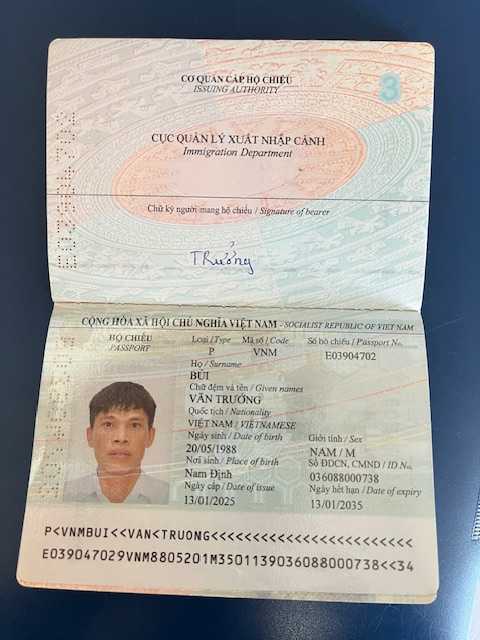 CƠ QUAN CẤP HỘ CHIẾU
ISSUING AUTHORITY
3
CỤC QUẢN LÝ XUẤT NHẬP CẢNH
Immigration Department
Chữ ký người mang hộ chiếu / Signature of bearer
Trưởng
CỘNG HÒA XÃ HỘI CHỦ NGHĨA VIỆT NAM - SOCIALIST REPUBLIC OF VIET NAM
HỘ CHIẾU Loại / Type Mã số / Code Số hộ chiếu / Passport No.
PASSPORT P VNM E03904702
Họ / Surname
BÙI
Chữ đệm và tên / Given names
VĂN TRƯỞNG
Quốc tịch / Nationality
VIỆT NAM / VIETNAMESE
Ngày sinh / Date of birth Giới tính / Sex
20/05/1988 NAM / M
Nơi sinh / Place of birth Số ĐDCN, CMND / ID No.
Nam Định 036088000738
Ngày cấp / Date of issue Ngày hết hạn / Date of expiry
13/01/2025 13/01/2035
P<VNMBUI<<VAN<TRUONG<<<<<<<<<<<<<<<<<<<<<<<<
E039047029VNM8805201M3501139036088000738<<34